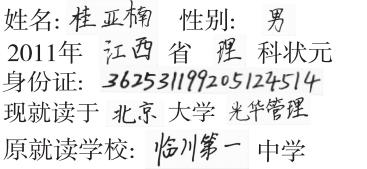 姓名: 桂亚楠 性别: 男
2011年 江西 省 理 科状元
身份证: 362531199205124514
现就读于 北京 大学 光华管理
原就读学校: 临川第一 中学